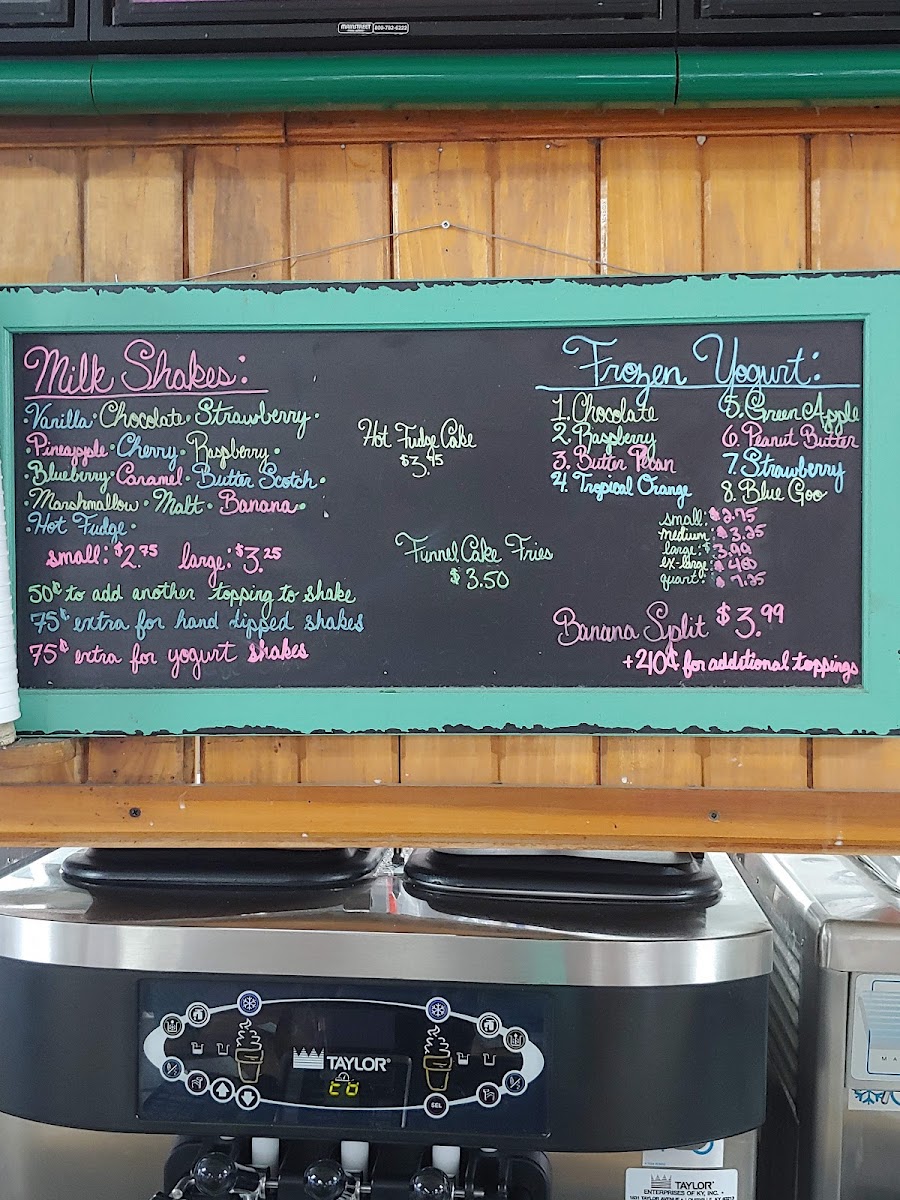 MAINSTREET 800-782-6222
Milk Shakes:
•Vanilla•Chocolate•Strawberry•
•Pineapple•Cherry•Raspberry•
•Blueberry•Caramel•Butter Scotch•
•Marshmallow•Malt•Banana•
•Hot Fudge•
small: $2.75 large: $3.25
50¢ to add another topping to shake
75¢ extra for hand dipped shakes
75¢ extra for yogurt shakes
Hot Fudge Cake
$3.95
Funnel Cake Fries
$3.50
Frozen Yogurt:
1. Chocolate
2. Raspberry
3. Butter Pecan
4. Tropical Orange
5. Green Apple
6. Peanut Butter
7. Strawberry
8. Blue Goo
small: $2.75
medium: $3.25
large: $3.99
ex-large
quart: $7.25
Banana Split $3.99
+40¢ for additional toppings
TAYLOR®
SEL
TAYLOR
ENTERPRISES OF KY, INC.